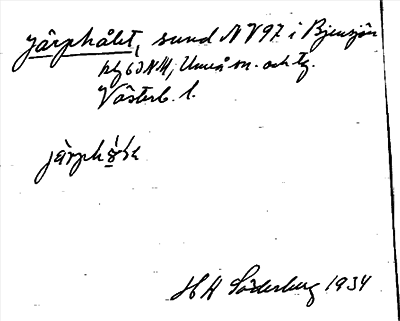 Järphålet, sund NV97 i Bjensjön
kbl 63 NM, Umeå sn. och tg.
Västerb. l.
järphålə
HA Söderberg 1934